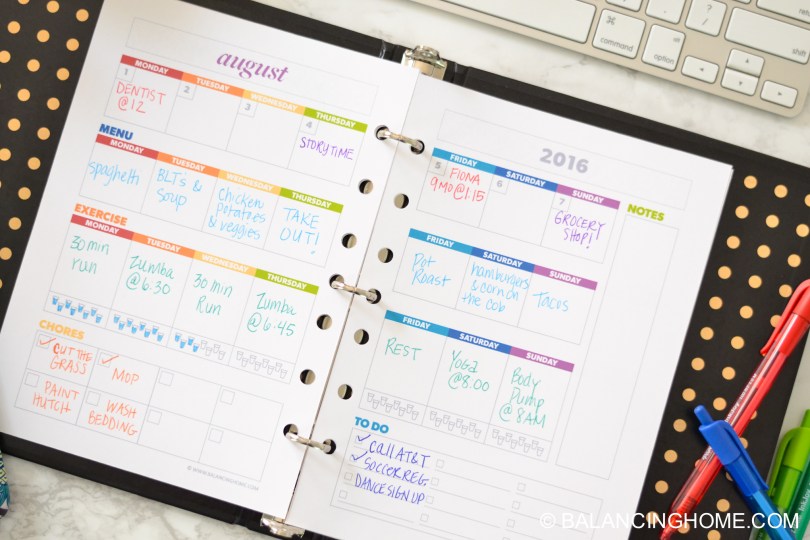 august
MONDAY TUESDAY WEDNESDAY THURSDAY
1 2 3 4
DENTIST
@12
STORYTIME
MENU
MONDAY TUESDAY WEDNESDAY THURSDAY
spaghetti
BLT's &
soup
Chicken
potatoes
& veggies
TAKE
OUT!
EXERCISE
MONDAY TUESDAY WEDNESDAY THURSDAY
30 min
run
Zumba
@6:30
30 min
Run
Zumba
@6:45
CHORES
CUT THE
GRASS
MOP
PAINT
HUTCH
WASH
BEDDING
© WWW.BALANCINGHOME.COM
2016
FRIDAY SATURDAY SUNDAY
NOTES
5 6 7
FIONA
9MO@1:15
GROCERY
SHOP!
FRIDAY SATURDAY SUNDAY
Pot
Roast
hamburgers
& corn on
the cob
Tacos
FRIDAY SATURDAY SUNDAY
REST
Yoga
@8:00
Body
Pump
@8AM
TO DO
CALL AT&T
SOCCER REG.
DANCE SIGN UP
command
option
control
return
shift
© BALANCINGHOME.COM